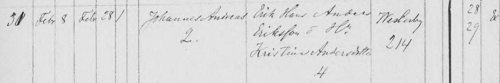 31 Febr 8 Febr 28 Johannes Andreas Erik Hans Anders Westerby 28
2. Eriksson o Ho 214 29
Kristina Andersdotter
4